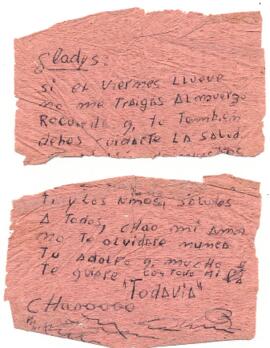 Gladys:
Si el Viernes LLueve
no me Traigas Almuerzo
Recuerda q, tu Tambien
debes cuidarte LA Salud
Ti y Los Amos, saludes
A Todos, chao mi Amor
no Te olvidare nunca
Tu Adolfo q, mucho
Te quiere con todo mi
"TODAVIA"
CHAOOOOO